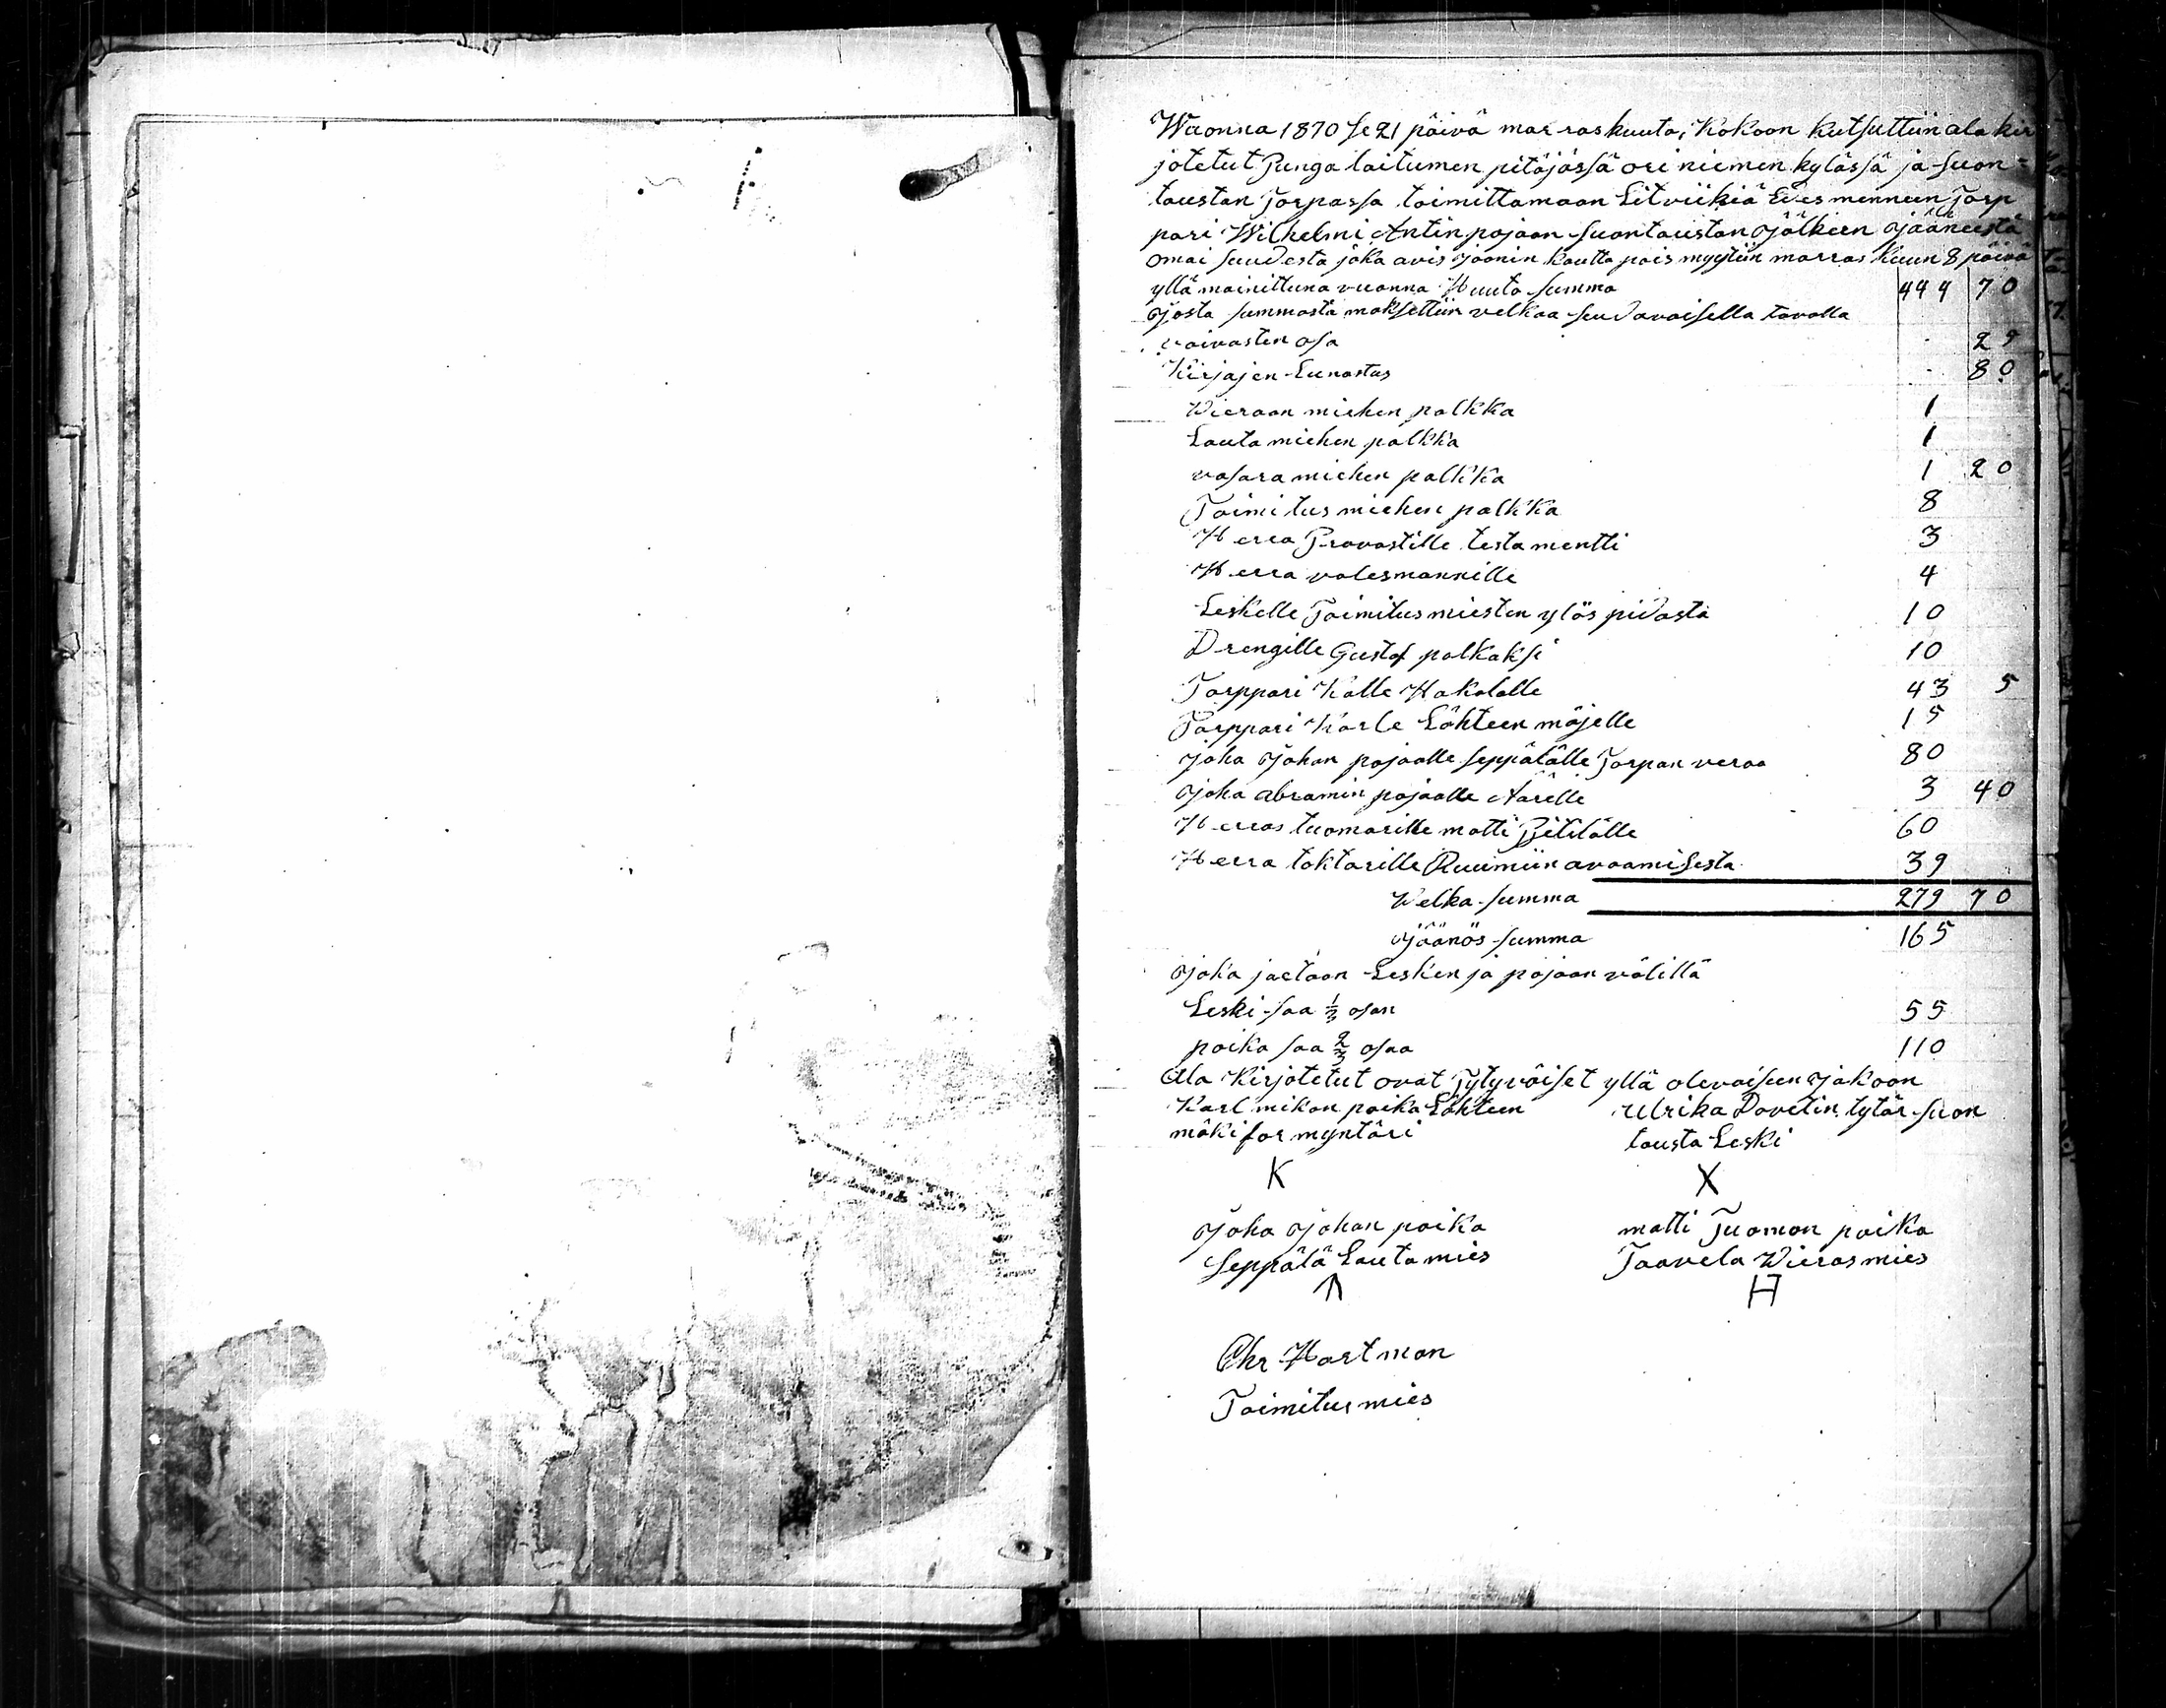 Wuonna 1870 se 21 päivä marraskuuta, Kokoon kutsuttiin ala kir
jotetut Punga laitumen pitäjässä ori niemen kylässä ja Suon=
taustan Torpassa toimittamaan Litviikiä Edes menneen Torp
pari Wilhelmi Antin pojaan Suontaustan Jälkeen Jääneestä
omai suudesta joka avis joonin kautta pois myytiin marras Kuun 8 päivä
yllä mainittuna vuonna Huuto Summa 444 70
Josta summasta maksettiin velkaa seudavaisella tavalla
vaivasten osa 29
Kirjajen Lunastus 80
Wieraan miehen palkka 1
Lauta miehen palkka 1
vasara miehen palkka 1 20
Toimitus miehen palkka 8
Herra Pravastille testa mentti 3
Herra valesmannille 4
Leskelle Toimitus miesten ylös pidosta 10
Drengille Gustaf palkaksi 10
Torppari Kalle Hakalalle 43 5
Torppari Karle Lähteen mäjelle 15
Joha Johan pojaalle seppälälle Torpan veraa 80
Joha abramin pojaalle Aärelle 3 40
Herras tuomarille matti Pitilälle 60
Herra toktarille Ruumiin avaamisesta 39
Welka Summa 279 70
Jäänös Summa 165
Joka jaetaan Lesken ja pojaan välillä
Leski saa 1/3 osan 55
poika saa 2/3 osaa 110
Ala Kirjotetut ovat Tytyväiset yllä olevaiseen Jakoon
Karl mikan poika Lähteen Ulrika Davetin tytär Suon
mäki for myntäri tausta Leski
K X
Joha Johan poika matti Tuoman poika
Seppälä Lautamies Taavela Wierasmies
H
Chr Hartman
Toimitusmies